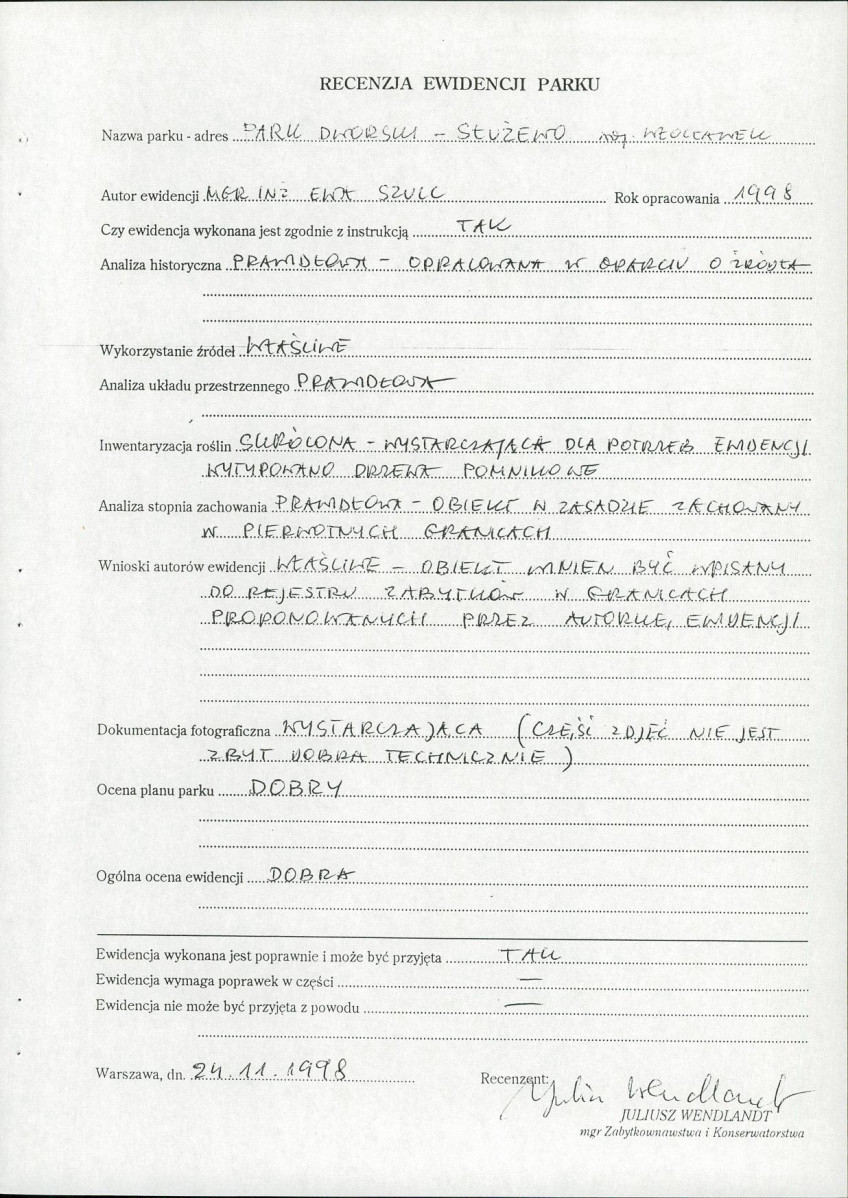 RECENZJA EWIDENCJI PARKU
Nazwa parku - adres PARK DWORSKI – SŁUŻEWO woj. WŁOCŁAWEK
Autor ewidencji MGR INŻ EWA SZULC Rok opracowania 1998
Czy ewidencja wykonana jest zgodnie z instrukcją TAK
Analiza historyczna PRAWIDŁOWA – OPRACOWANA W OPARCIU O ŹRÓDŁA
Wykorzystanie źródeł WŁAŚCIWE
Analiza układu przestrzennego PRAWIDŁOWA
Inwentaryzacja roślin SKRÓCONA – WYSTARCZAJĄCA DLA POTRZEB EWIDENCJI
WYTYPOWANO DRZEWA POMNIKOWE
Analiza stopnia zachowania PRAWIDŁOWA – OBIEKT W ZASADZIE ZACHOWANY
W PIERWOTNYCH GRANICACH
Wnioski autorów ewidencji WŁAŚCIWE – OBIEKT WINIEN BYĆ WPISANY
DO REJESTRU ZABYTKÓW W GRANICACH
PROPONOWANYCH PRZEZ AUTORKĘ EWIDENCJI
Dokumentacja fotograficzna WYSTARCZAJĄCA (CZĘŚĆ ZDJĘĆ NIE JEST
ZBYT DOBRA TECHNICZNIE)
Ocena planu parku DOBRY
Ogólna ocena ewidencji DOBRA
Ewidencja wykonana jest poprawnie i może być przyjęta TAK
Ewidencja wymaga poprawek w części —
Ewidencja nie może być przyjęta z powodu —
Warszawa, dn. 24.11.1998 Recenzent: Juliusz Wendlandt
JULIUSZ WENDLANDT
mgr Zabytkownawstwa i Konserwatorstwa